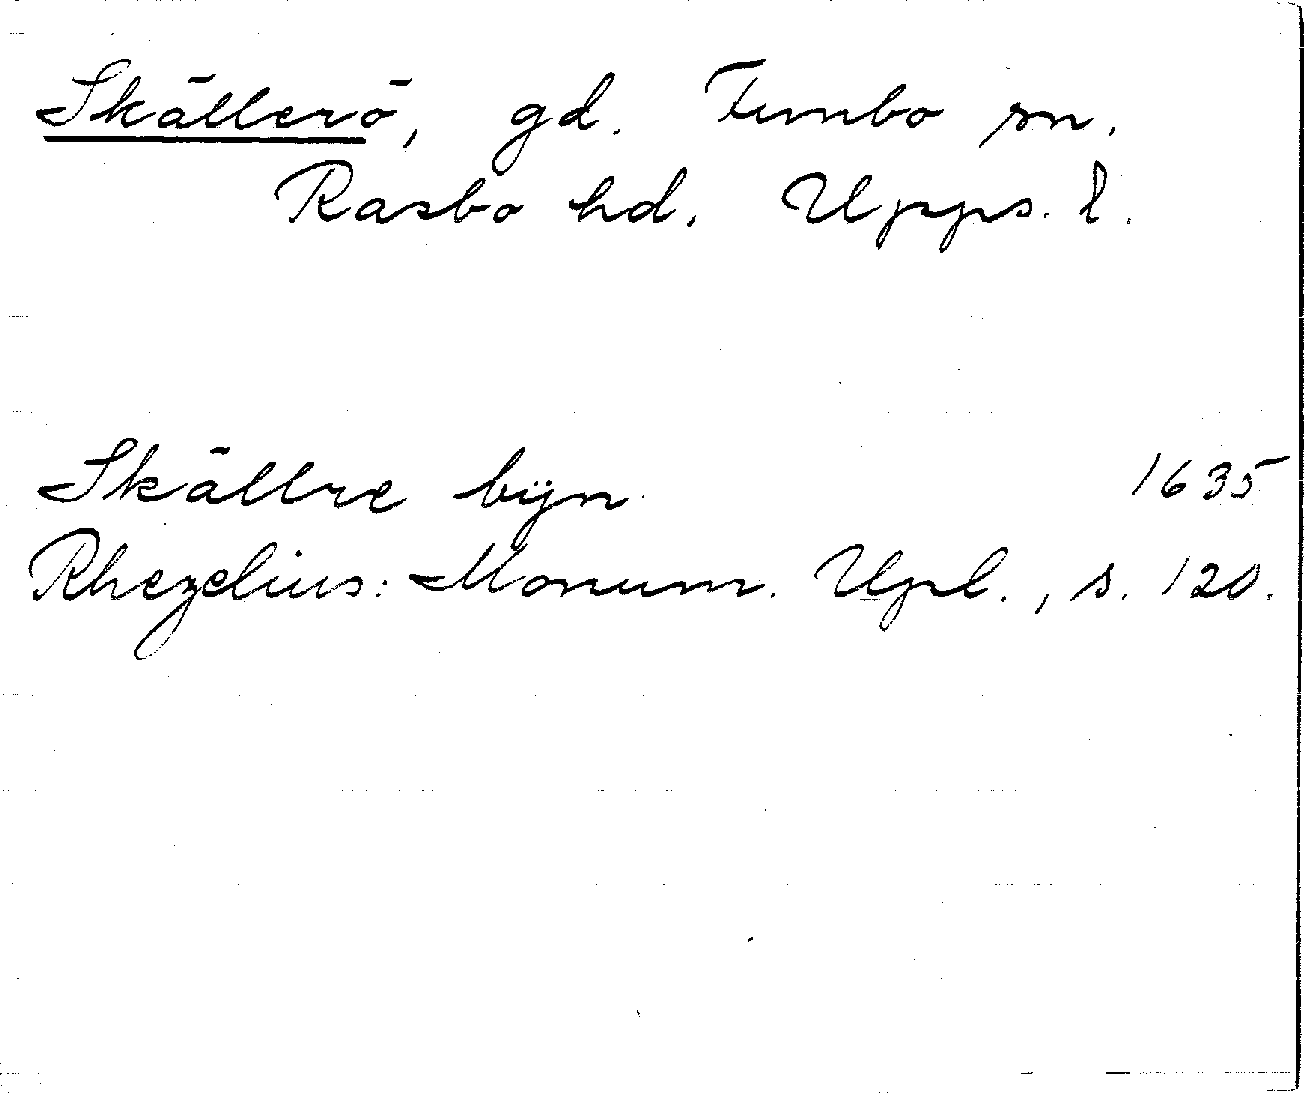 Skällerö, gd. Funbo sn.
Rasbo hd. Upps. l.
Skällre bÿn 1635
Rhezelius: Monum. Upl., s. 120.